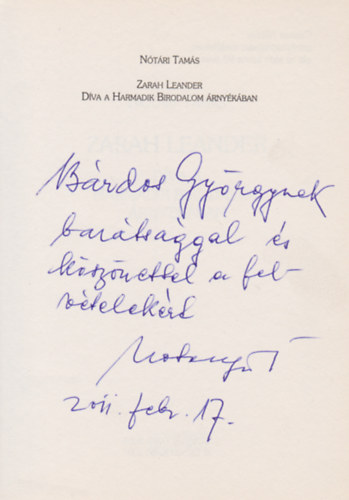 NÓTÁRI TAMÁS
ZARAH LEANDER
DÍVA A HARMADIK BIRODALOM ÁRNYÉKÁBAN
ZARAH LEANDER
Bárdos Györgynek
barátsággal és
köszönettel a fel-
vételekért
2011. febr. 17.